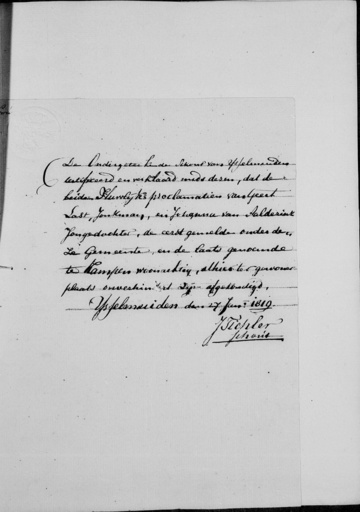 De Ondergeteekende Schout van IJsselmuiden
certificeerd en verklaard mids dezen, dat de
beide Huwlijks proclamatien van Geert
Last, Jonkman, en Johanna van
Jongedochter, de eerst gemelde onder de
Gemeente, en de laatst genoemde
te Kampen woonachtig, alhier ter gewoner
plaats onverhinderd zijn afgekondigd.
IJsselmuiden den 27 Junij 1819.
Schout